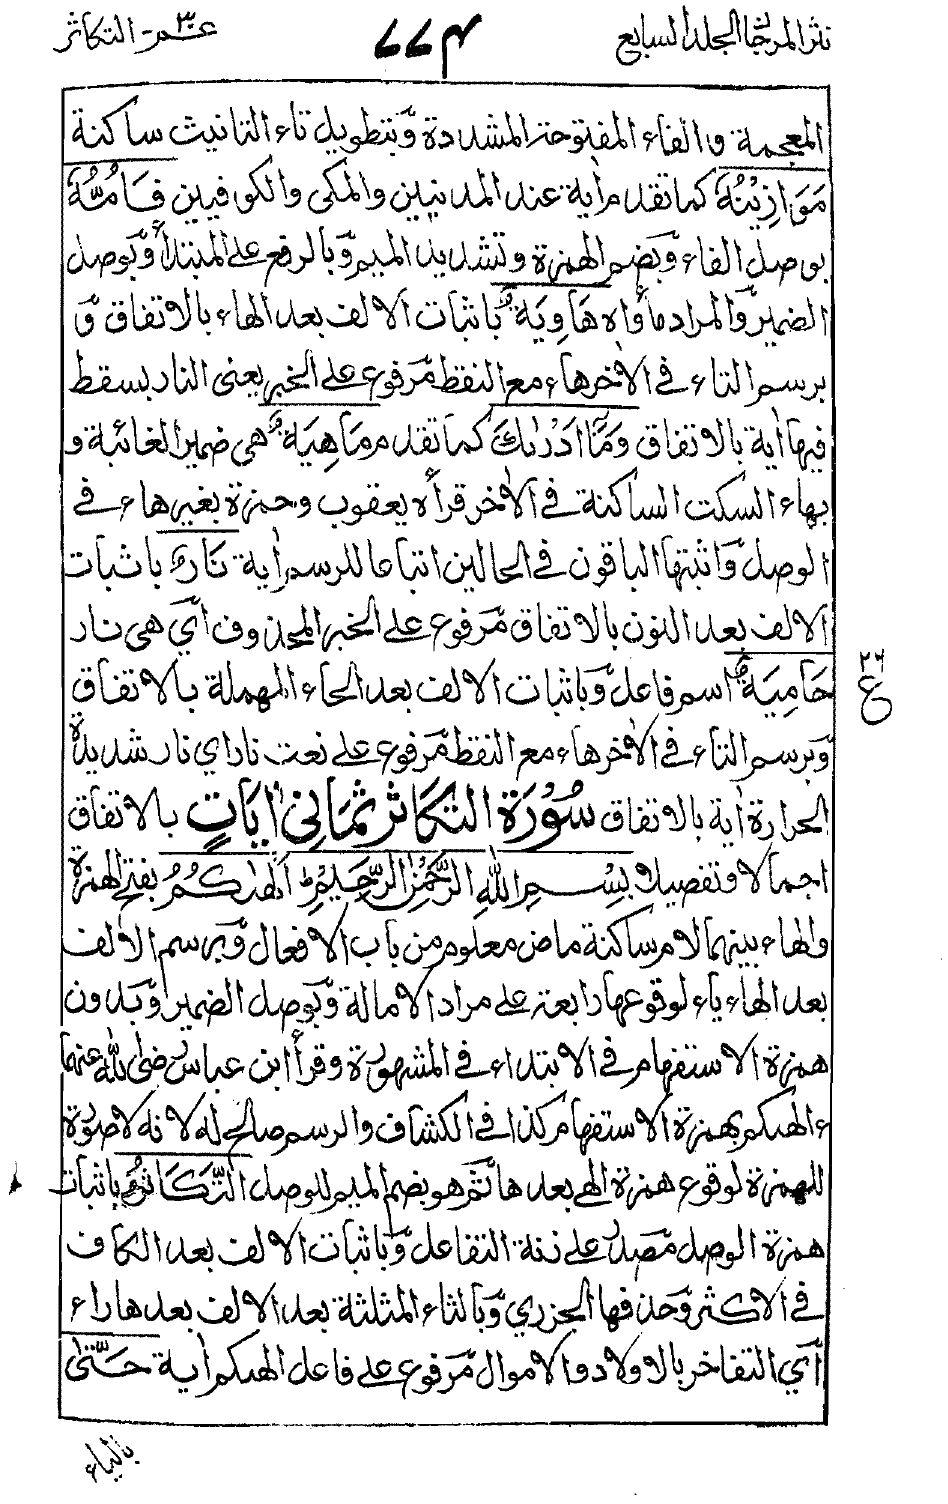 نثر المرجان المجلد السابع ٧٧٤ عمّ ٣٠ التكاثر
المعجمة والفاء المفتوحة المشددة وبتطويل تاء التانيث ساكنة
مَوَازِيْنُهٗ كما تقدم أية عند المدنيين والمكي والكوفيين فَاُمُّهٗ
بوصل الفاء وّبضم الهمزة وتشديد الميم وّبالرفع على المبتدأ وّبوصل
الضمير وّالمراد مأواه هَاوِيَةٌ باثبات الالف بعد الهاء بالاتفاق وّ
برسم التاء في الأخر هاء مع النقط مّرفوع على الخبر يعنى النار يسقط
فيها أية بالاتفاق وَمَآ اَدْرٰىكَ كما تقدم مَاهِيَهْ هي ضمير الغائبة و
بهاء السكت الساكنة في الأخر قرأه يعقوب وحمزة بغير هاء في
الوصل وّاثبتها الباقون في الحالين اتباعا للرسم أية نَارٌ باثبات
الالف بعد النون بالاتفاق مّرفوع على الخبر المحذوف أي هي نار
حَامِيَةٌ اسم فاعل وّباثبات الالف بعد الحاء المهملة بالاتفاق
وّبرسم التاء في الأخر هاء مع النقط مّرفوع على نعت نار اي نار شديدة
الحرارة أية بالاتفاق سُوْرَةُ التكاثر ثماني اٰيَاتٍ بالاتفاق
اجمالا وتفصيلا بِسْمِ اللهِ الرَّحْمٰنِ الرَّحِيْمِ اَلْهٰىكُمُ بفتح الهمزة
والهاء بينهما لام ساكنة ماض معلوم من باب الافعال وّبرسم الالف
بعد الهاء ياء لوقوعها رابعة على مراد الامالة وّبوصل الضمير وّبدون
همزة الاستفهام في الابتداء في المشهورة وقرأ ابن عباس رضى الله عنهما
ءالهىكم بهمزة الاستفهام كذا في الكشاف والرسم صالح له لانه لا صورة
للهمزة لوقوع همزة الهى بعدها ثمّ هو بضم الميم للوصل التَّكَاثُرُ باثبات
همزة الوصل مّصدر على زنة التفاعل وّباثبات الالف بعد الكاف
في الاكثر وّحذفها الجزري وّبالثاء المثلثة بعد الالف بعدها راء
أي التفاخر بالاولاد والاموال مّرفوع على فاعل الهىكم أية حَتّٰى
٢٦
ع
بالياء